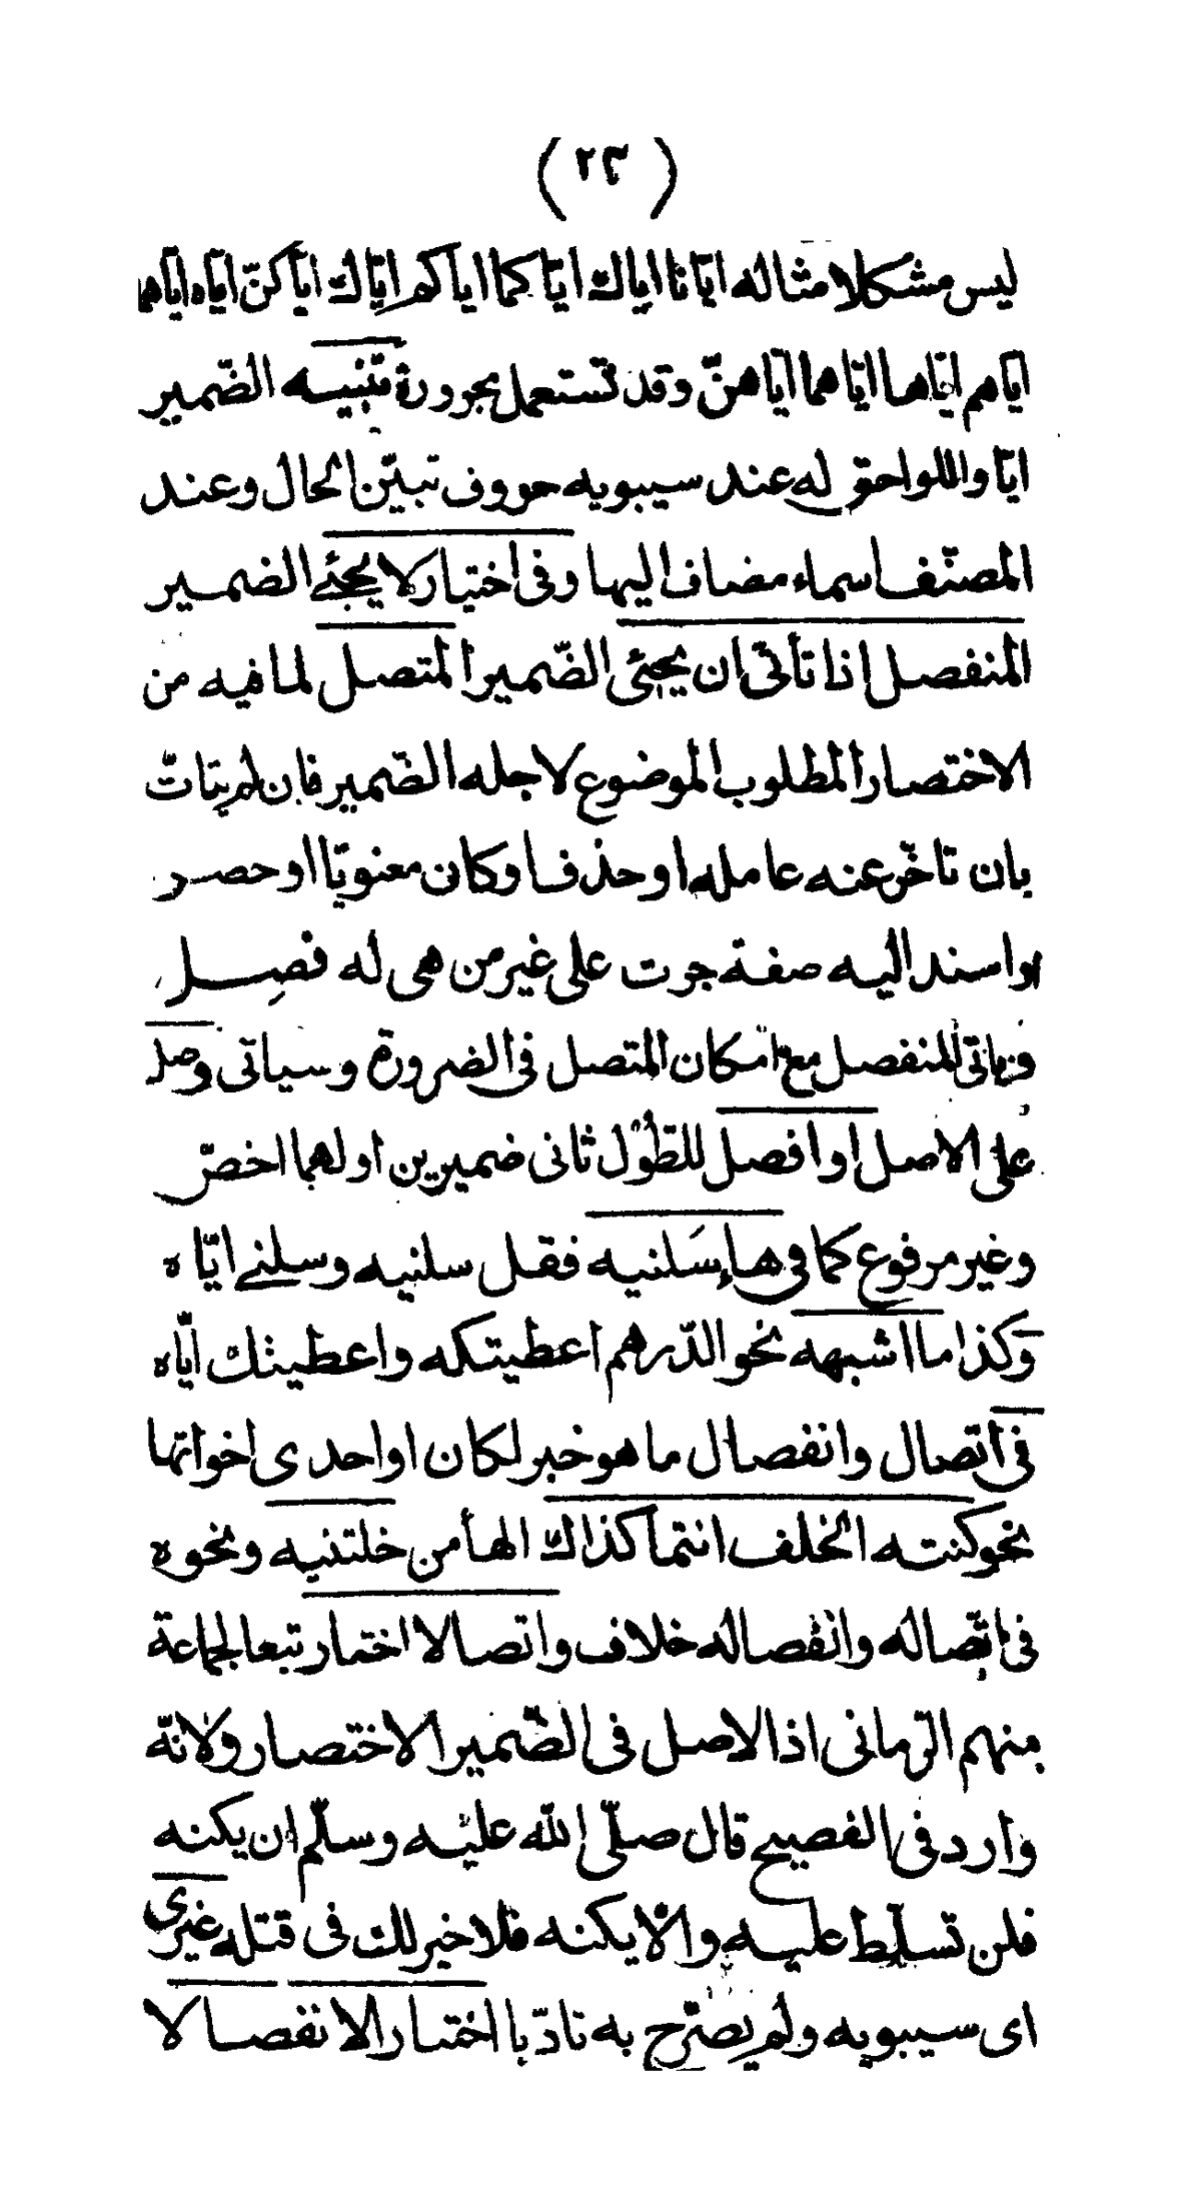 (٢٣)
ليس مشكلا مثاله ايّانا اياك ايّاكما اياكم ايّاك اياكنّ ايّاه اياها
اياهم ايّاها ايّاهما ايّاهنّ وقد تستعمل مجرورة تنبيه الضّمير
ايّا واللواحق له عند سيبويه حروف تبيّن الحال وعند
المصنّف اسماء مضاف اليها وفى اختيار لا يجئ الضمير
المنفصل اذا تأتّى ان يجئ الضّمير المتصل لما فيه من
الاختصار المطلوب الموضوع لاجله الضّمير فان لم يتات
بان تاخّر عنه عامله او حذف او كان معنويّا او حصر
او اسند اليه صفة جرت على غير من هى له فصل
وياتى المنفصل مع امكان المتصل فى الضرورة وسياتى وصل
على الاصل او افصل للطّول ثانى ضميرين اولهما اخصّ
وغير مرفوع كما فى هاء سَلنيه فقل سلنيه وسلنى ايّاه
وكذا ما اشبهه نحو الدّرهم اعطيتكه واعطيتك ايّاه
فى اتصال وانفصال ما هو خبر لكان او احدى اخواتها
نحو كنته الخلف انتمى كذاك الهأ من خلتنيه ونحوه
فى اتّصاله وانفصاله خلاف واتصالا اختار تبعا لجماعة
منهم الرّمانى اذ الاصل فى الضّمير الاختصار ولانّه
وارد فى الفصيح قال صلّى الله عليه وسلّم ان يكنه
فلن تسلّط عليه والّا يكنه فلا خير لك فى قتله غيرى
اى سيبويه ولم يصرّح به تادّبا اختار الانفصالا